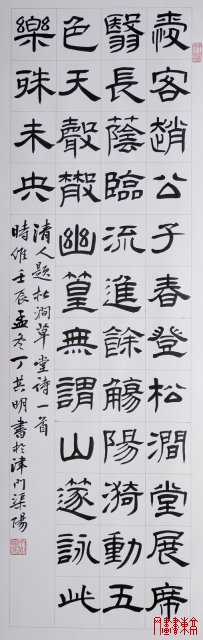 愛客趙公子春登松澗堂展席
翳長蔭臨流進餘觴陽漪動五
色天縠散幽篁無謂山蓫詠此
樂殊未央
清人題松澗草堂诗一首
時維壬辰孟冬丁其明書於津門渠陽